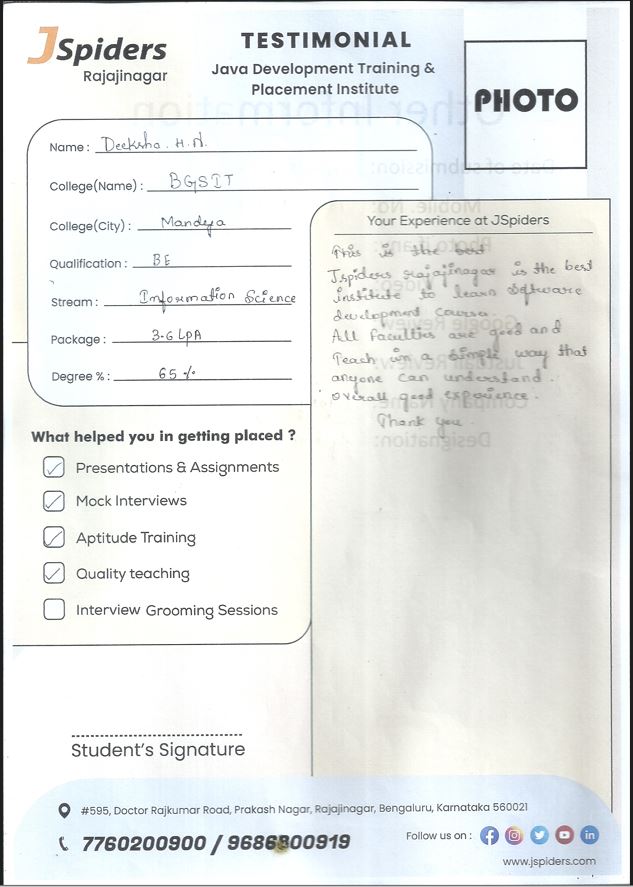 JSpiders
Rajajinagar
TESTIMONIAL
Java Development Training &
Placement Institute
PHOTO
Name : Deeksha . H . N.
College(Name) : BGSIT
College(City) : Mandya
Qualification : BE
Stream : Information Science
Package : 3.6 LPA
Degree % : 65 %
What helped you in getting placed ?
Presentations & Assignments
Mock Interviews
Aptitude Training
Quality teaching
Interview Grooming Sessions
Student's Signature
Your Experience at JSpiders
This is the best
Jspiders rajajinagar is the best
institute to learn software
development course.
All faculties are good and
Teach in a simple way that
anyone can understand.
overall good experience.
Thank you.
#595, Doctor Rajkumar Road, Prakash Nagar, Rajajinagar, Bengaluru, Karnataka 560021
7760200900 / 9686300919
Follow us on :
www.jspiders.com